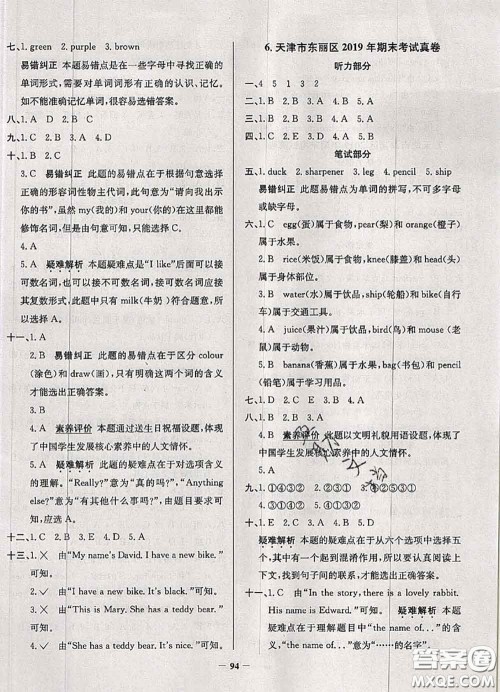 七、1. green　2. purple　3. brown
易错纠正　本题易错点是在一些字母中寻找正
确的单词形式，需要对单词词形有正确的认识、记忆。
不能准确地记忆单词，很容易选错答案。
八、1. A　D　2. C　A　3. D　B
十、1. C　2. B
3. C　易错纠正　此题的易错点在于根据句意选择
正确的形容词性物主代词，此句意为“请向我出示
你的书”，虽然 my(我的)和 your(你的)在这里都能
修饰名词，但your(你的)更加符合题意，所以选择C。
4. A　疑难解析　本题疑难点是“I like”后面可以接
可数名词，也可以接不可数名词，可数名词则应接
其复数形式，此题中只有 milk(牛奶)符合题意，所
以选择 A。
十一、1. A
2. B　易错纠正　此题的易错点在于区分 colour
(涂色)和 draw(画)，只有明确到这两个词的含义
才能选出正确答案。
3. B
4. A　素养评价　本题通过送生日祝福设题，体
现了中国学生发展核心素养中的人文情怀。
5. A　疑难解析　此题的疑难点在于对选项含义
的理解。“Really?”意为“真的吗?”，“Anything
else?”意为“有其他什么事吗?”，由题目要求可
知，应为 A。
十二、C　B　A
十三、1. ×　由“My name's David. I have a new bike.”可
知。
2. ✓　由“I have a new bike. It's black.”可知。
3. ×　由“This is Mary. She has a teddy bear.”可
知。
4. ✓　由“She has a teddy bear. It's nice.”可知。
94
6. 天津市东丽区 2019 年期末考试真卷
听力部分
一、4　5　1　2　3
二、1. B　2. B　3. A　4. B　5. A
三、1. C　2. B　3. A　4. C　5. A
四、C　E　A　B　D
笔试部分
五、1. duck　2. sharpener　3. leg　4. pencil　5. ship
易错纠正　此题易错点为单词的拼写，不可多字母或
缺字母。
六、1. C　egg(蛋)属于食物，pear(梨)和 orange(橙子)
属于水果。
2. C　rice(米饭)属于食物，knee(膝盖)和 head(头)
属于身体部位。
3. B　water(水)属于饮品，ship(轮船)和 bike(自行
车)属于交通工具。
4. A　juice(果汁)属于饮品，bird(鸟)和 mouse(老
鼠)属于动物。
5. B　banana(香蕉)属于水果，bag(书包)和 pencil
(铅笔)属于学习用品。
七、1. C　2. D　3. E　4. B　5. A
八、1. B　2. C　3. A
4. B　素养评价　此题以文明礼貌用语设题，体现了
中国学生发展核心素养中的人文情怀。
5. A
九、①④③②　①③④②　⑥②⑤①③④
十、1. C　2. E　3. D　4. A　5. B
疑难解析　本题的疑难点在于从六个选项中选择五
个，其中有一个起到混淆作用，所以要认真查看题干，
找到句子间的联系，进而选出正确答案。
十一、1. A　由“In the story, there is a lovely rabbit.
His name is Edward.”可知。　疑难解析　此题
疑难点在于理解题目中“the name of...”的含义。
“the name of...”意为“……的名字”。
答案圈
MXQE.COM